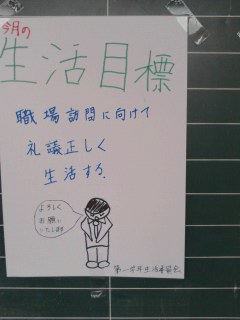 今月の
生活目標
職場訪問に向けて
礼議正しく
生活する
よろしく
お願い
いたします
第一学年生活委員会